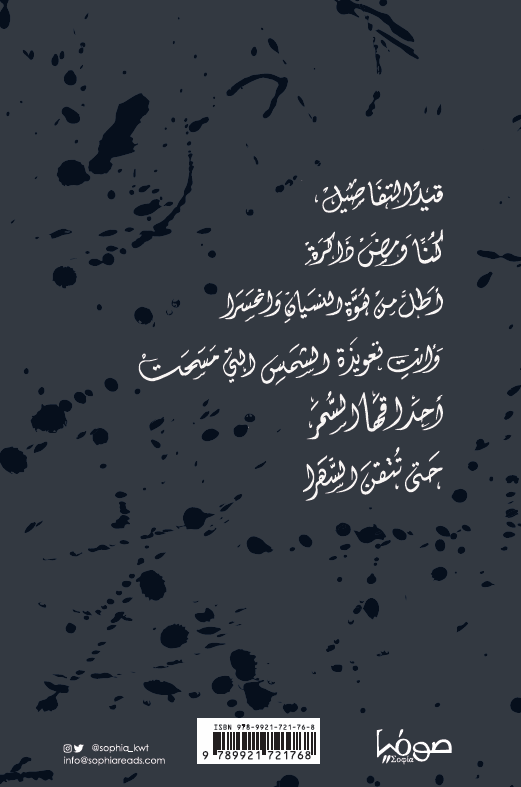 قيدُ التفَاصِيلِ،
كُنّا وَمِضَ ذَاكرَةٍ
أطَلَّ مِنْ هُوَّةِ النسيَانِ وَانحَسَرَا
وَأنتِ تعويذَة الشمسِ التي مَسَحَتْ
أحدَاقهَا السُّمرَ
حَتى تُتْقنَ السَّهَرا
ISBN 978-9921-721-76-8
9 789921 721768
@sophia_kwt
info@sophiareads.com
صوفيا
Σοφία